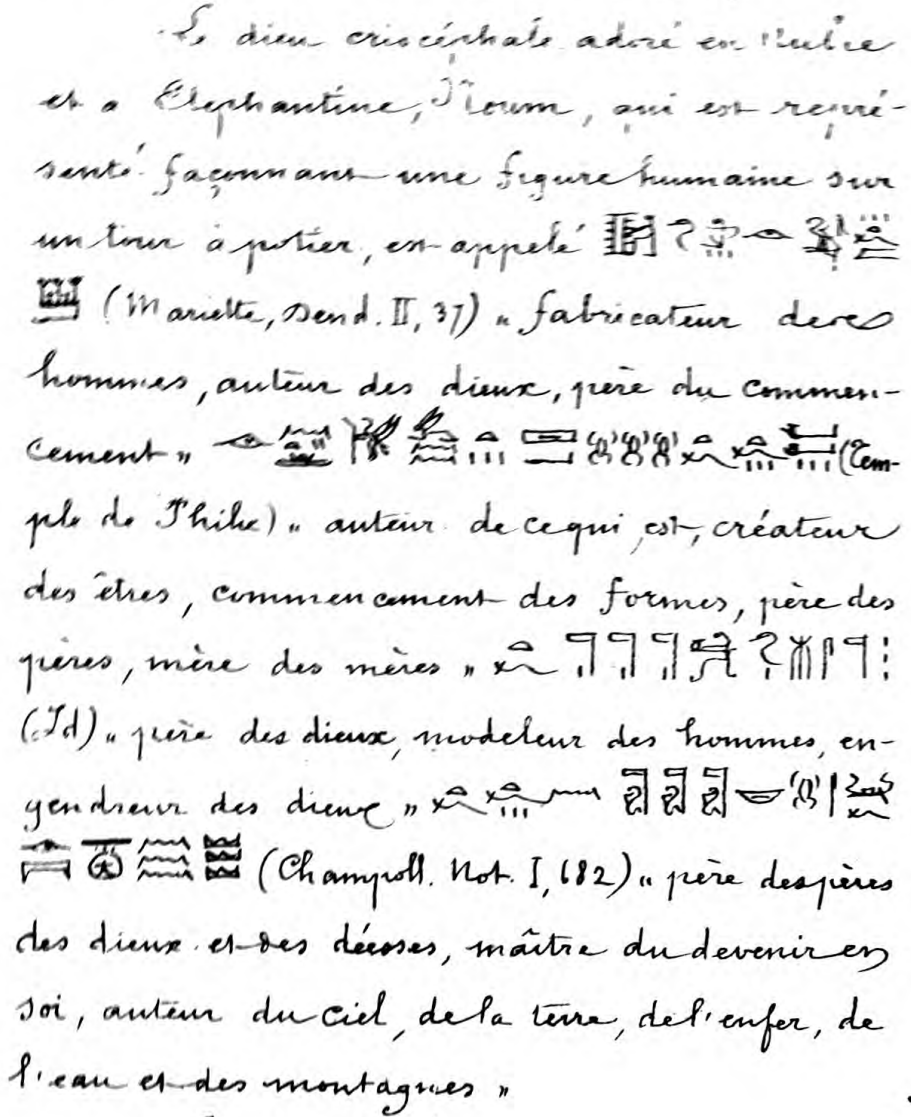 Le dieu criocéphale adoré en Nubie
et a Elephantine, Noum, qui est repré-
senté façonnant une figure humaine sur
un tour à potier, est appelé
(Mariette, Dend. II, 37) „ fabricateur des
hommes, auteur des dieux, père du commen-
cement „ (Tem-
ple de Philæ) „ auteur de ce qui est, créateur
des êtres, commencement des formes, père des
pères, mère des mères „
(Id) „ père des dieux, modeleur des hommes, en-
gendreur des dieux „
(Champoll. Not. I, 682) „ père des pères
des dieux et des déesses, maître du devenir en
soi, auteur du ciel, de la terre, de l'enfer, de
l'eau et des montagnes „